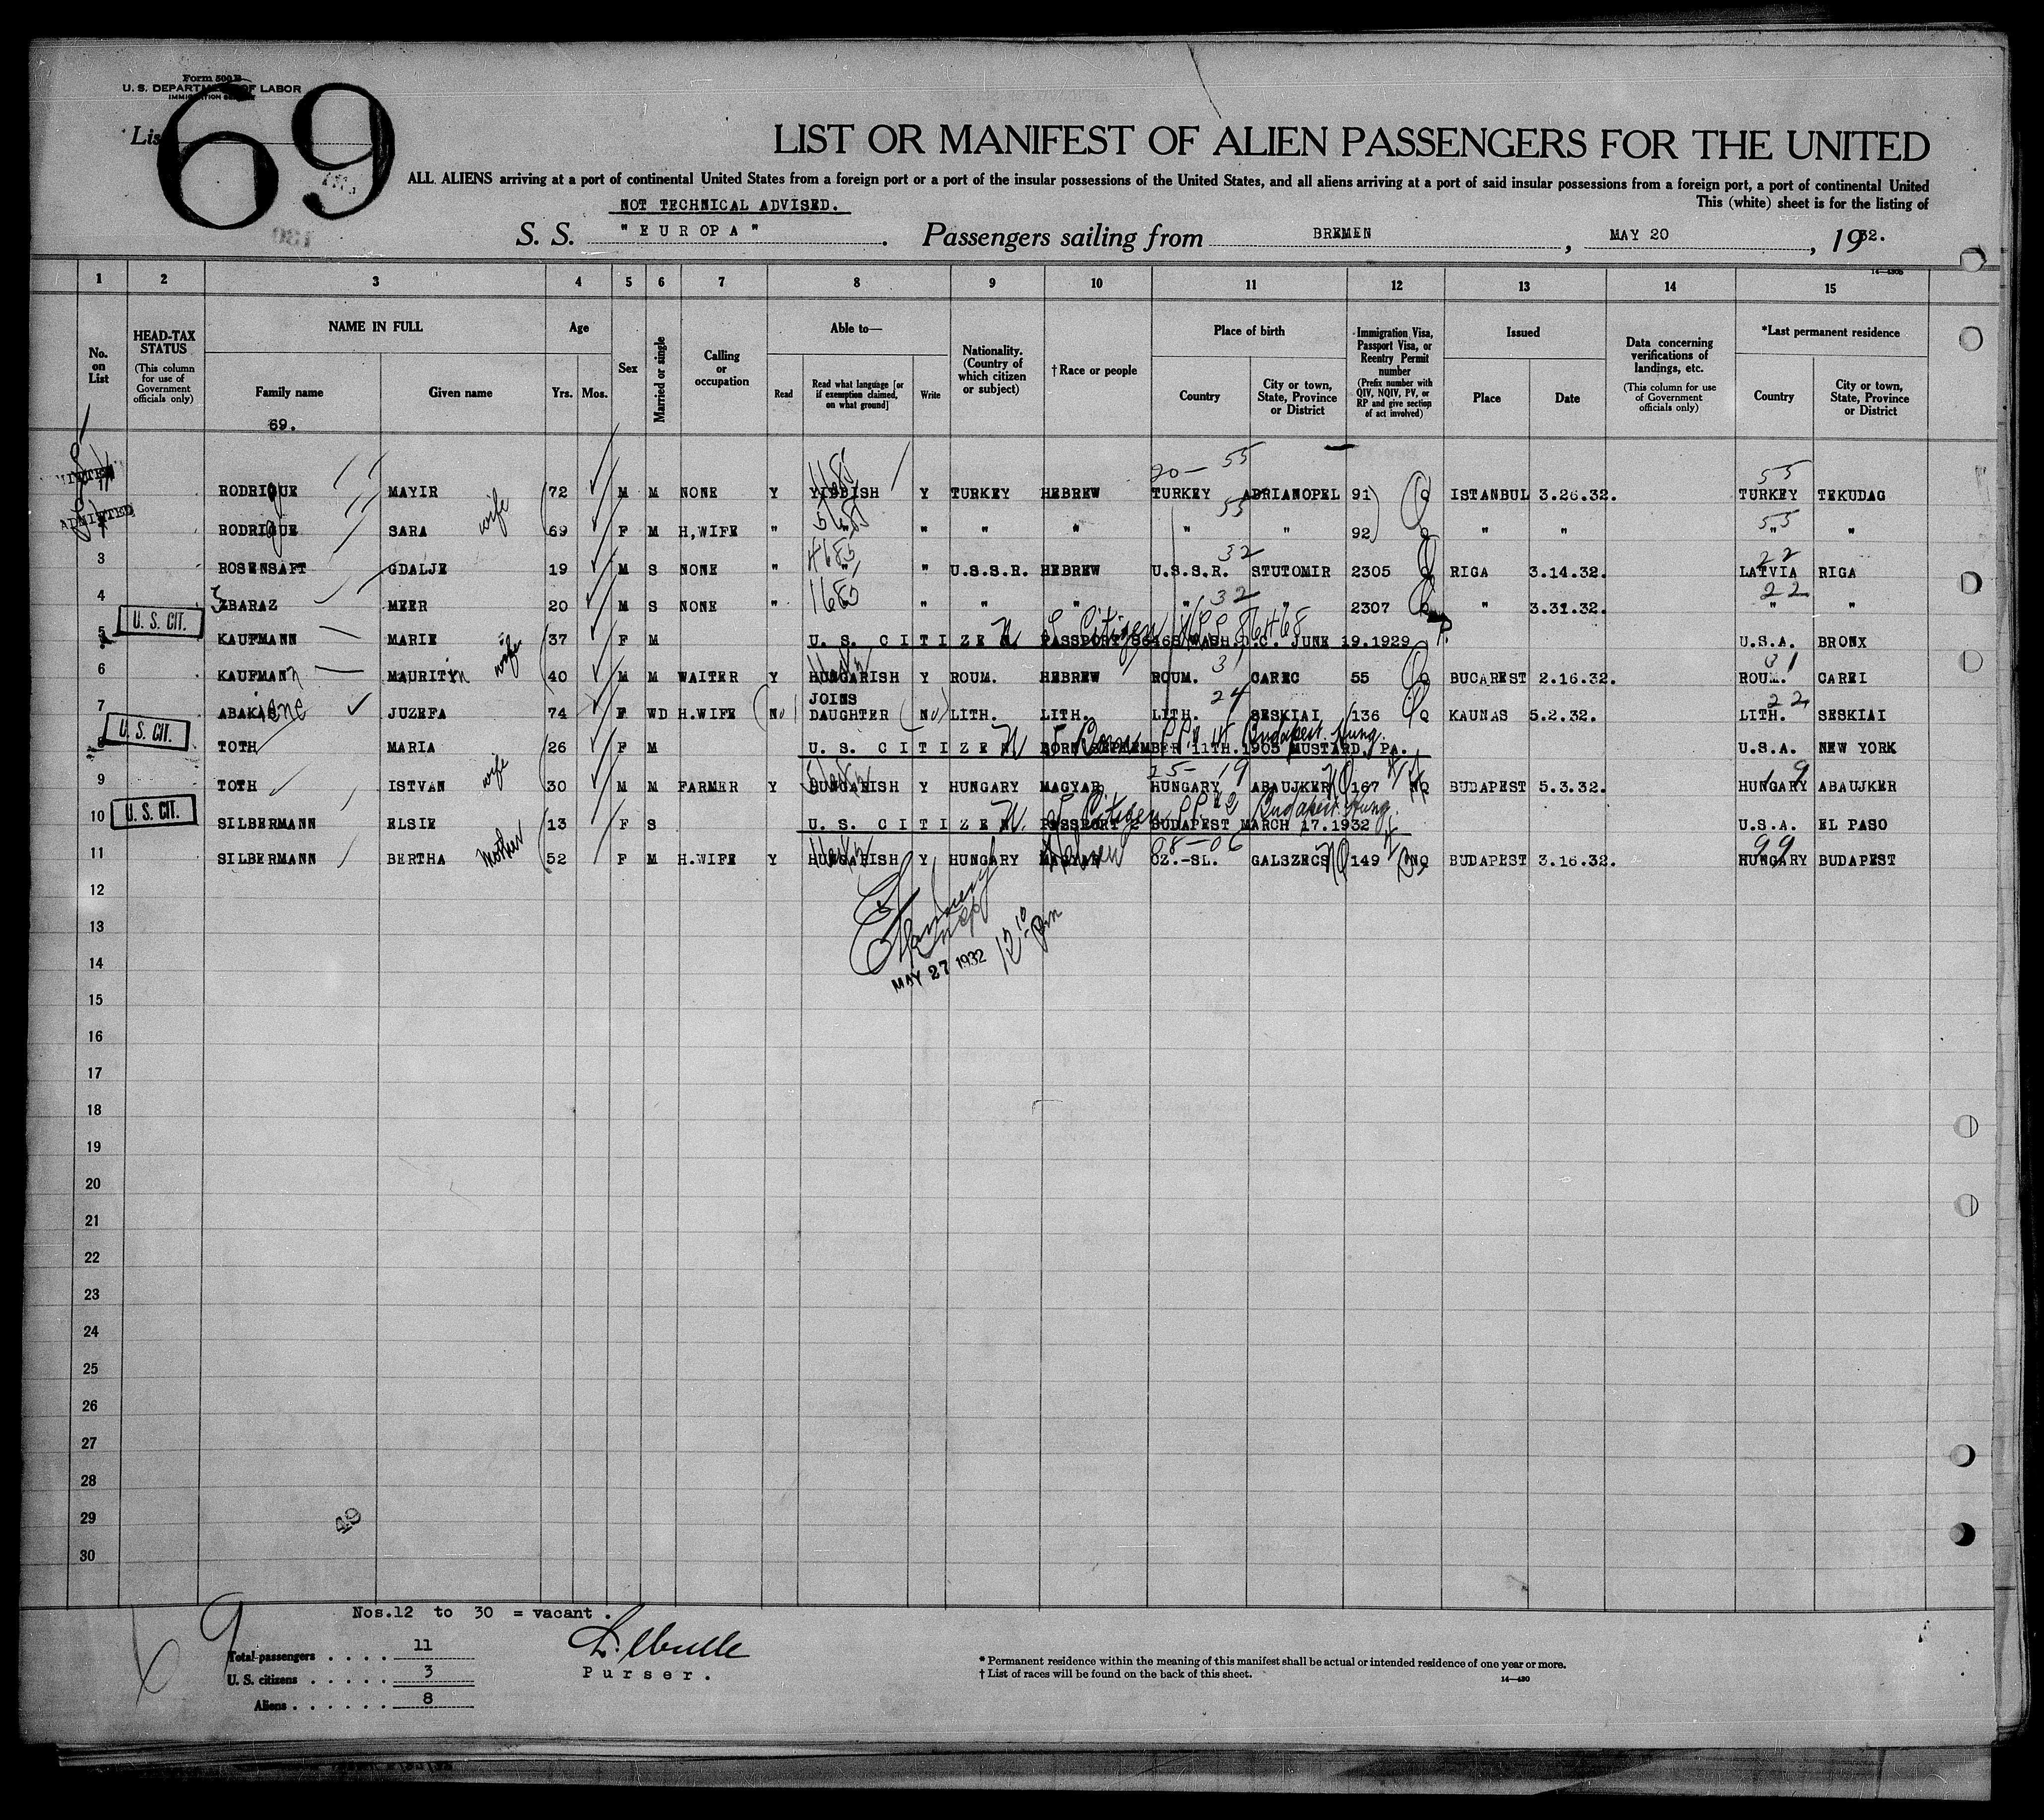 Form 500 B
U. S. DEPARTMENT OF LABOR
IMMIGRATION SERVICE
List
69
LIST OR MANIFEST OF ALIEN PASSENGERS FOR THE UNITED
ALL ALIENS arriving at a port of continental United States from a foreign port or a port of the insular possessions of the United States, and all aliens arriving at a port of said insular possessions from a foreign port, a port of continental United
This (white) sheet is for the listing of
NOT TECHNICAL ADVISED.
S. S. "EUROPA". Passengers sailing from BREMEN, MAY 20, 1932.
1 2 3 4 5 6 7 8 9 10 11 12 13 14 15
No. on List
HEAD-TAX STATUS (This column for use of Government officials only)
NAME IN FULL
Family name
Given name
Age
Yrs. Mos.
Sex
Married or single
Calling or occupation
Able to—
Read
Read what language [or if exemption claimed, on what ground]
Write
Nationality. (Country of which citizen or subject)
† Race or people
Place of birth
Country
City or town, State, Province or District
Immigration Visa, Passport Visa, or Reentry Permit number (Prefix number with QIV, NQIV, PV, or RP and give section of act involved)
Issued
Place
Date
Data concerning verifications of landings, etc. (This column for use of Government officials only)
*Last permanent residence
Country
City or town, State, Province or District
69.
20— 55 55
ADMITTED RODRIGUE MAYIR 72 M M NONE Y YIDDISH Y TURKEY HEBREW TURKEY ADRIANOPEL 91 Q ISTANBUL 3.26.32. TURKEY TEKUDAG
55 55
ADMITTED RODRIGUE SARA wife 69 F M H,WIFE " " " " " " " 92 Q " " " "
32 22
3 ROSENSAFT GDALJE 19 M S NONE " " " U.S.S.R. HEBREW U.S.S.R. STUTOMIR 2305 Q RIGA 3.14.32. LATVIA RIGA
32 22
4 ZBARAZ MEER 20 M S NONE " " " " " " 2307 Q " 3.31.32. " "
U. S. CIT.
5 KAUFMANN MARIE wife 37 F M U. S. CITIZEN PASSPORT 86468 WASH.D.C. JUNE 19.1929 U.S.A. BRONX
31 31
6 KAUFMANN MAURITY 40 M M WAITER Y HUNGARISH Y ROUM. HEBREW ROUM. CAREC 55 Q BUCAREST 2.16.32. ROUM. CAREI
24 22
7 ABAKIENE JUZEFA 74 F WD H.WIFE (No) JOINS DAUGHTER (No) LITH. LITH. LITH. SESKIAI 136 Q KAUNAS 5.2.32. LITH. SESKIAI
U. S. CIT.
8 TOTH MARIA 26 F M U. S. CITIZEN BORN SEPTEMBER 11TH.1905 MUSTARD, PA. U.S.A. NEW YORK
9 TOTH ISTVAN wife 30 M M FARMER Y HUNGARISH Y HUNGARY MAGYAR HUNGARY ABAUJKER 167 NQ BUDAPEST 5.3.32. HUNGARY ABAUJKER
U. S. CIT.
10 SILBERMANN ELSIE 13 F S U. S. CITIZEN PASSPORT 2 BUDAPEST MARCH 17.1932 U.S.A. EL PASO
11 SILBERMANN BERTHA Mother 52 F M H.WIFE Y HUNGARISH Y HUNGARY MAGYAR Hebrew CZ.-SL. GALSZECS 149 NQ BUDAPEST 3.16.32. HUNGARY BUDAPEST
12
13
MAY 27 1932 12 10 pm
14
15
16
17
18
19
20
21
22
23
24
25
26
27
28
29
49
30
Nos.12 to 30 = vacant.
Total passengers . . . . 11
U. S. citizens . . . . . 3
Aliens . . . . . . 8
Purser.
* Permanent residence within the meaning of this manifest shall be actual or intended residence of one year or more.
† List of races will be found on the back of this sheet.